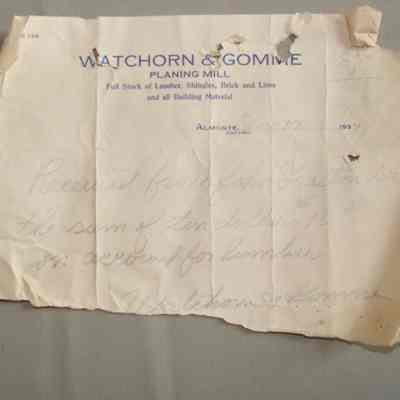 WATCHORN & GOMME
PLANING MILL
Full Stock of Lumber, Shingles, Brick and Lime
and all Building Material
ALMONTE, 193
ONTARIO
Received from
the sum of ten dollars
on account for lumber
Watchorn & Gomme